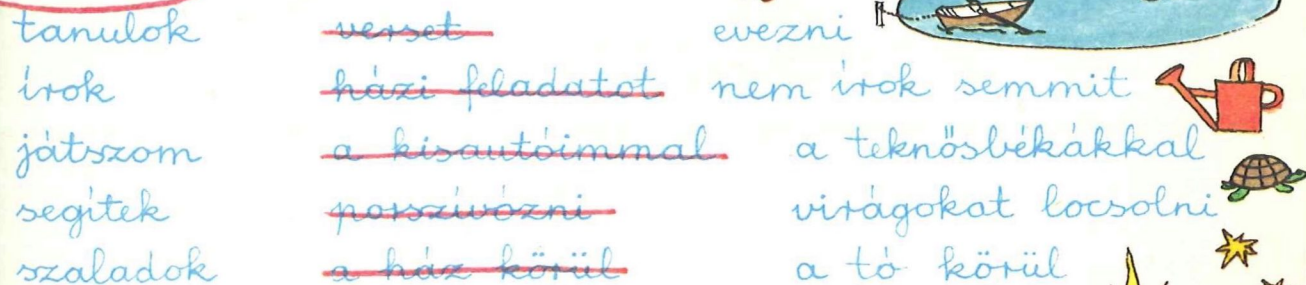 tanulok verset evezni
írok házi feladatot nem írok semmit
játszom a kisautóimmal a teknősbékákkal
segítek porszívózni virágokat locsolni
szaladok a ház körül a tó körül